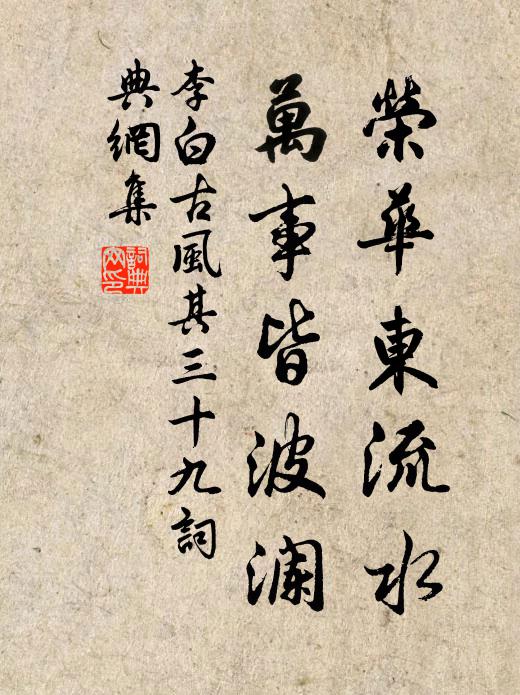 榮華東流水
萬事皆波瀾
李白古風其三十九詞
典網集
詞典
网印